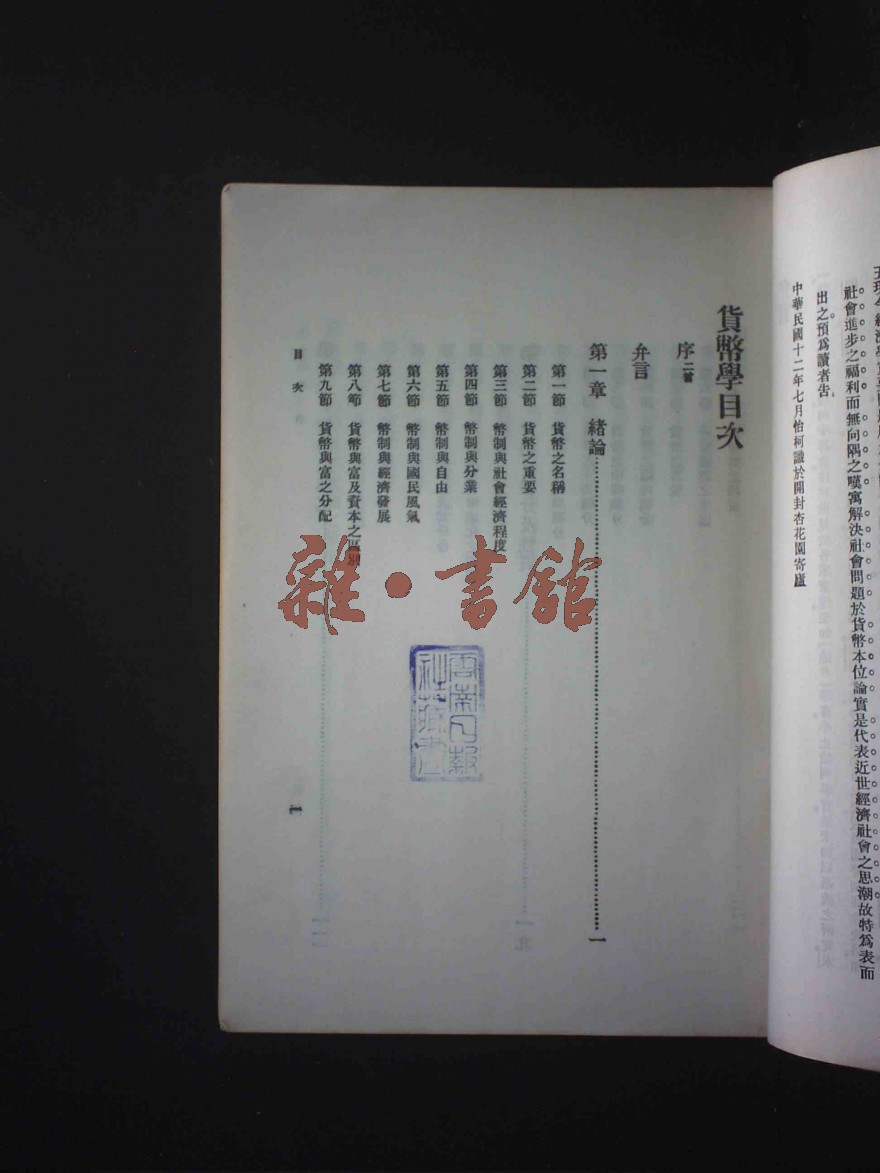 社會進步之福利而無向隅之嘆寓解決社會問題於貨幣本位論實是代表近世經濟社會之思潮故特爲表而
出之預爲讀者告
中華民國十二年七月怡柯識於開封杏花園寄廬
貨幣學目次
序二首
弁言
第一章 緒論……一
第一節 貨幣之名稱
第二節 貨幣之重要
第三節 幣制與社會經濟程度
第四節 幣制與分業
第五節 幣制與自由
第六節 幣制與國民風氣
第七節 幣制與經濟發展
第八節 貨幣與富及資本之區別
第九節 貨幣與富之分配
目次
一
雜·書館
雲南日報
社藏書